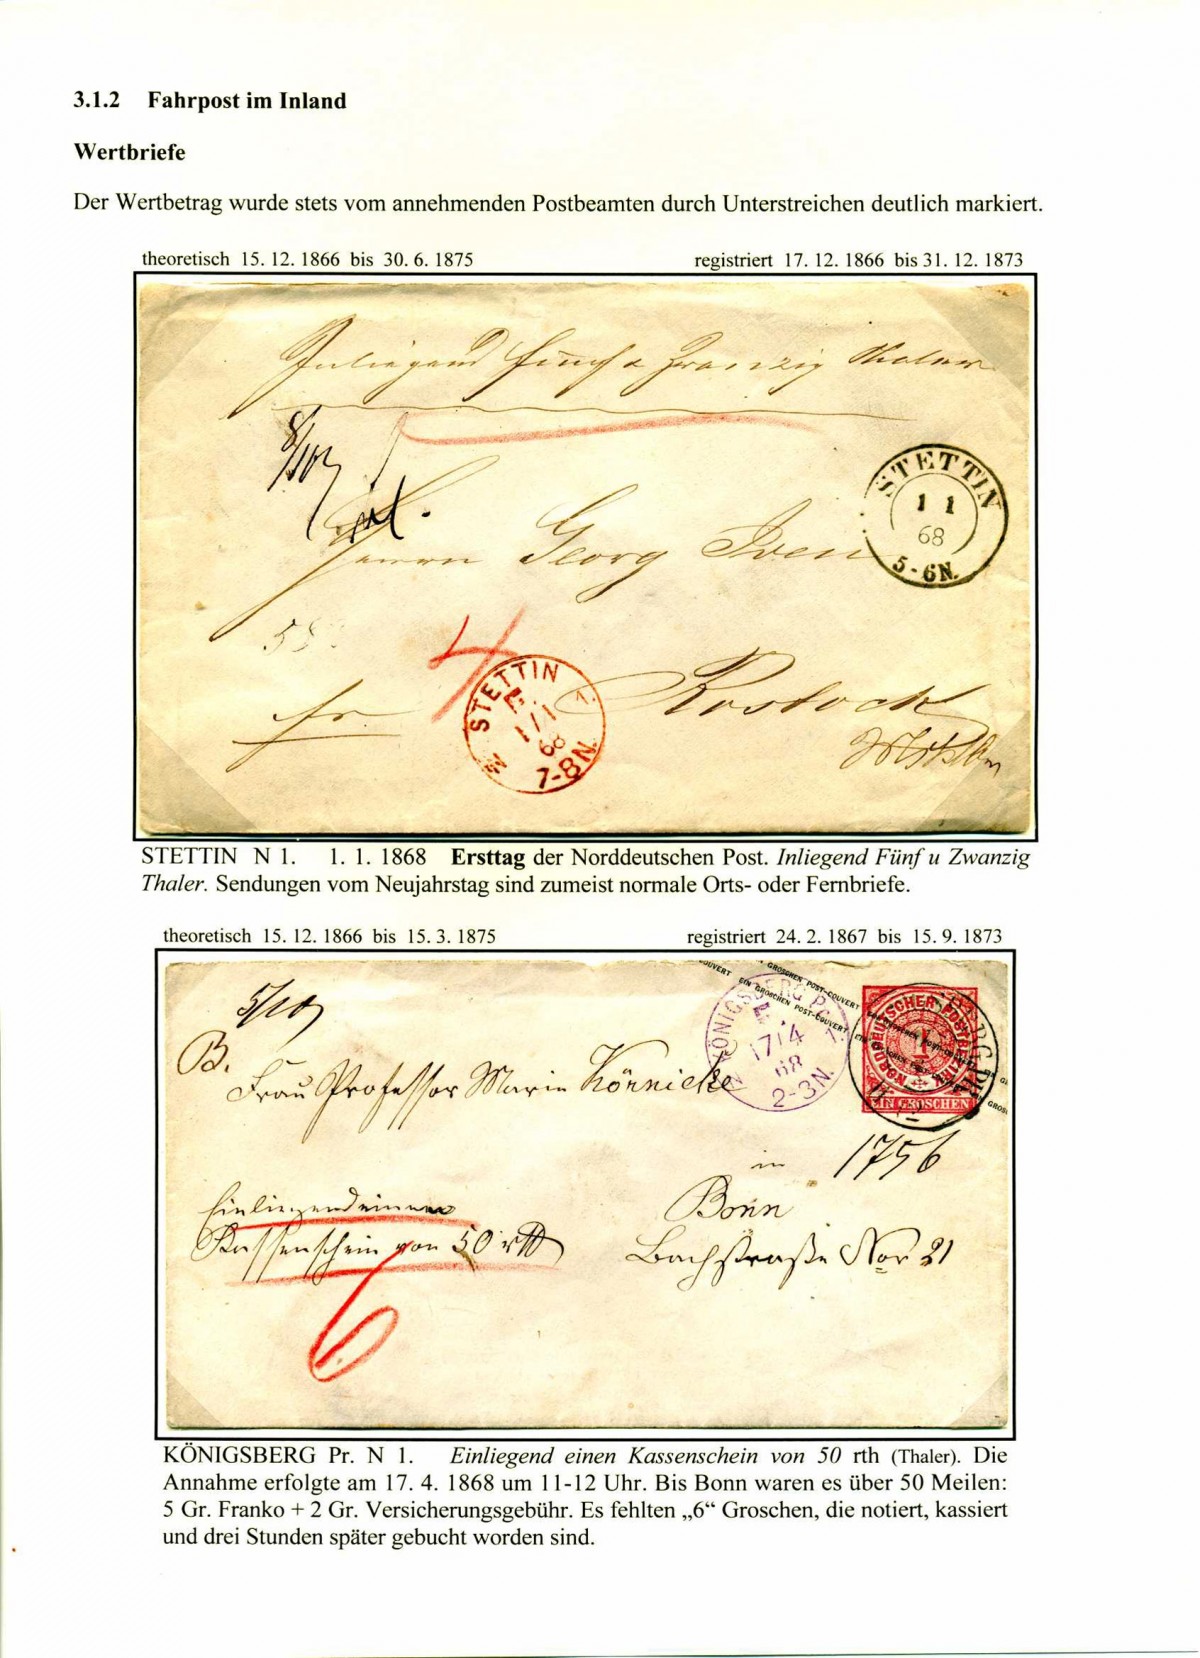 3.1.2 Fahrpost im Inland
Wertbriefe
Der Wertbetrag wurde stets vom annehmenden Postbeamten durch Unterstreichen deutlich markiert.
theoretisch 15. 12. 1866 bis 30. 6. 1875 registriert 17. 12. 1866 bis 31. 12. 1873
Inliegend fünf u Zwanzig Thaler
STETTIN
1 1
68
5-6N.
Herrn Georg Iven
4
STETTIN
1/1
68
7-8N.
N 1.
fr.
Rostock
STETTIN N 1. 1. 1. 1868 Ersttag der Norddeutschen Post. Inliegend Fünf u Zwanzig
Thaler. Sendungen vom Neujahrstag sind zumeist normale Orts- oder Fernbriefe.
theoretisch 15. 12. 1866 bis 15. 3. 1875 registriert 24. 2. 1867 bis 15. 9. 1873
EIN GROSCHEN POST-COUVERT
KÖNIGSBERG PR.
17/4
68
2-3N.
N 1.
NORDDEUTSCHER POSTBEZIRK
1
EIN GROSCHEN
B.
Frau Professor Marie Körnicke
in
1756
Bonn
Bachstraße Nor 21
Einliegend einen
Kassenschein von 50 rth
6
KÖNIGSBERG Pr. N 1. Einliegend einen Kassenschein von 50 rth (Thaler). Die
Annahme erfolgte am 17. 4. 1868 um 11-12 Uhr. Bis Bonn waren es über 50 Meilen:
5 Gr. Franko + 2 Gr. Versicherungsgebühr. Es fehlten „6“ Groschen, die notiert, kassiert
und drei Stunden später gebucht worden sind.